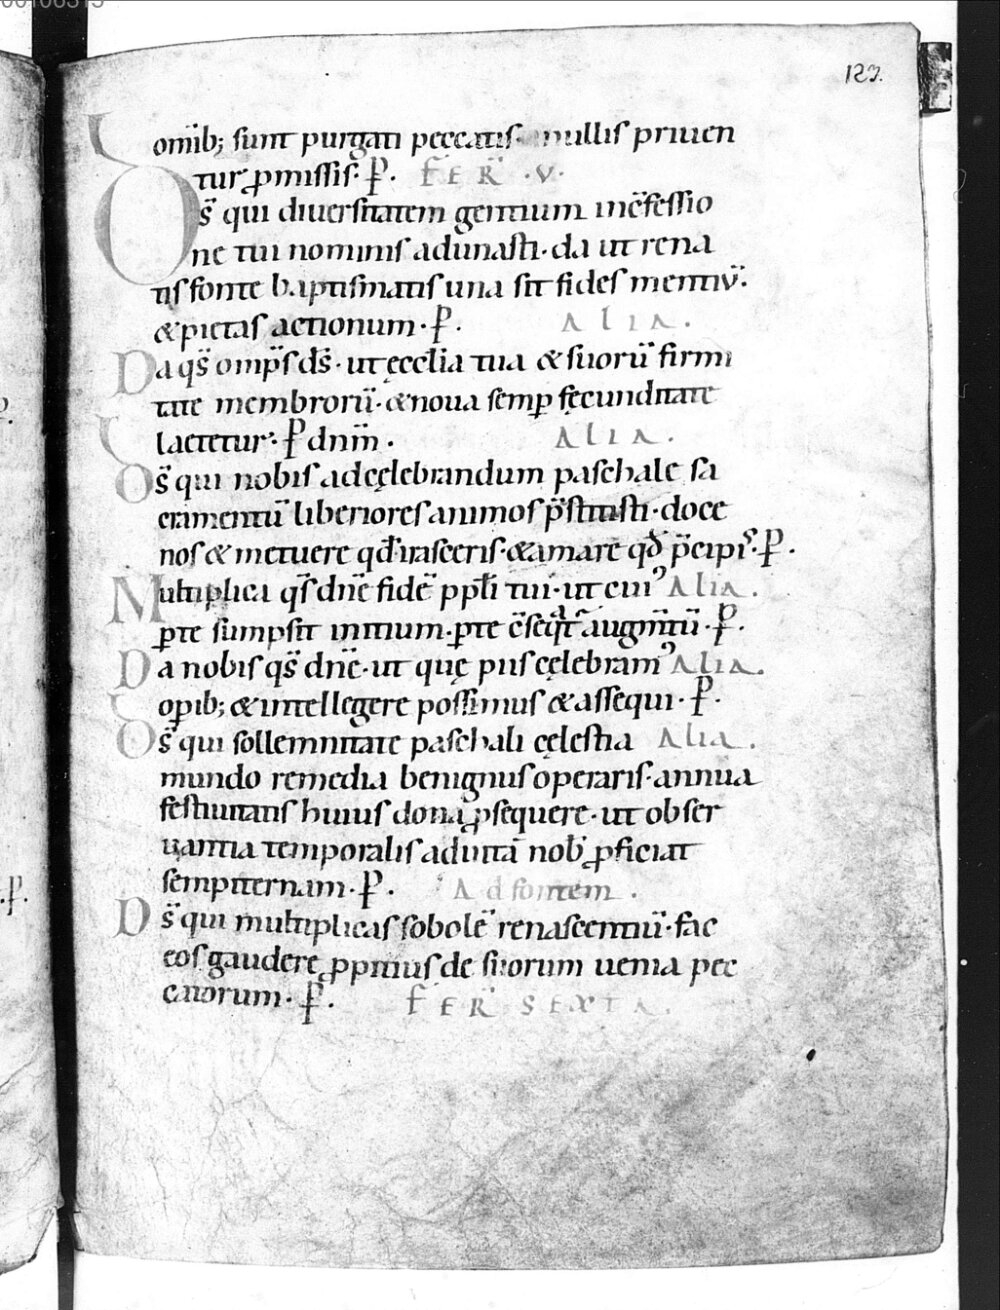 00106313
123.
omib; sunt purgati peccatis. nullis priuen
tur ꝓmissis. P. FER̄ .V.
Os̄ qui diuersitatem gentium inc̄fessio
ne tui nominis adunasti. da ut rena
tis fonte baptismatis una sit fides mentiū.
& pietas actionum. P. ALIA.
Da qs̄ omp̄s ds̄. ut ęcclīa tua & suorū firmi
tate membrorū. & noua semꝑ fęcunditate
laetetur. P dnm̄. ALIA.
Os̄ qui nobis ad cęlebrandum paschale sa
cramentū liberiores animos p̄stitisti. doce
nos & metuere qđ irasceris. & amare qđ p̄cipis. P.
Multiplica qs̄ dnē fidē ppłi tui. ut cuiꝰ Alia.
ꝑte sumpsit initium. ꝑte c̄seqͣt̄ augm̄tū. P.
Da nobis qs̄ dnē. ut quę piis cęlebramꝰ Alia.
oꝑib; & intellegere possimus & assequi. P.
Os̄ qui sollemnitate paschali cęlestia Alia.
mundo remedia benignus operaris. annua
festiuitatis huius dona ꝓsequere. ut obser
uantia temporalis ad uitā nob̄ ꝓficiat
sempiternam. P. Ad fontem.
Ds̄ qui multiplicas sobolē renascentiū. fac
eos gaudere ꝓpitius de suorum uenia pec
catorum. P. FER̄ SEXTA.